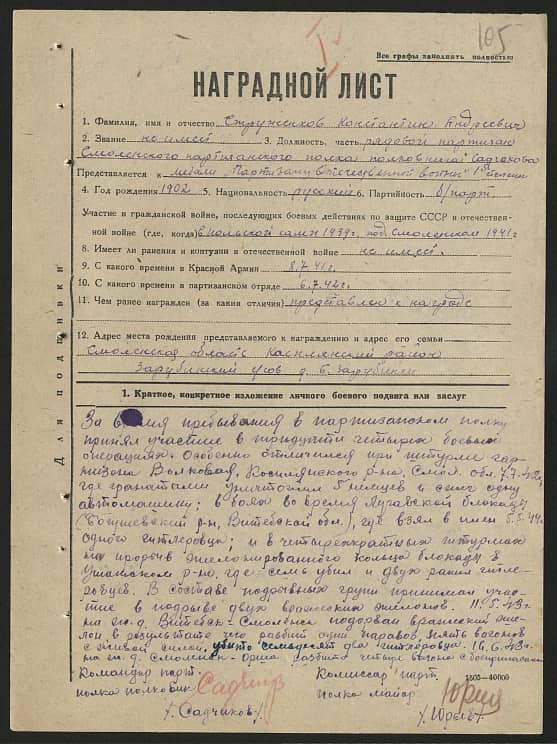 105
Все графы заполнять полностью
НАГРАДНОЙ ЛИСТ
1. Фамилия, имя и отчество Струженков Константин Андреевич
2. Звание не имеет 3. Должность, часть рядовой партизан
Смоленского партизанского полка полковника Садчикова
Представляется к медали "Партизану Отечественной войны" 1й степени
4. Год рождения 1902 5. Национальность русский 6. Партийность б/парт.
Участие в гражданской войне, последующих боевых действиях по защите СССР и отечествен-
ной войне (где, когда) в польской камп. 1939г., под Смоленском 1941г
8. Имеет ли ранения и контузии в отечественной войне не имеет.
9. С какого времени в Красной Армии 8.7.41г.
10. С какого времени в партизанском отряде 6.7.42г.
11. Чем ранее награжден (за какие отличия) представлен к награде
12. Адрес места рождения представляемого к награждению и адрес его семьи
Смоленская область Касплянский район
Зарубинский с/сов д. Б. Зарубинки
Для подшивки
1. Краткое, конкретное изложение личного боевого подвига или заслуг
За время пребывания в партизанском полку
принял участие в тридцати четырех боевых
операциях. Особенно отличился при штурме гар-
низона Волковая, Касплянского р-на, Смол. обл. 7.7.42г.
где гранатами уничтожил 5 немцев и сжег одну
автомашину; в боях во время Лучавской блокады
(Богушевский р-н, Витебской обл.), где взял в плен 5.5.44г.
одного гитлеровца; и в четырехкратных штурмах
на прорыв эшелонированного кольца блокады в
Ушачском р-не, где семь убил и двух ранил гитле-
ровцев. В составе подрывных групп принимал учас-
тие в подрыве двух вражеских эшелонов. 11.5.43г
на ж.д. Витебск-Смоленск подорван вражеский эше-
лон, в результате чего разбит один паровоз, пять вагонов
с живой силой, убито семьдесят два гитлеровца. 16.6.43г.
на ж.д. Смоленск-Орша разбито четыре вагона с боеприпасами
Командир парт.
полка полковник Садчик
/Садчиков/.
Комиссар парт.
полка майор Юрьев
/Юрьев/
1505-40000